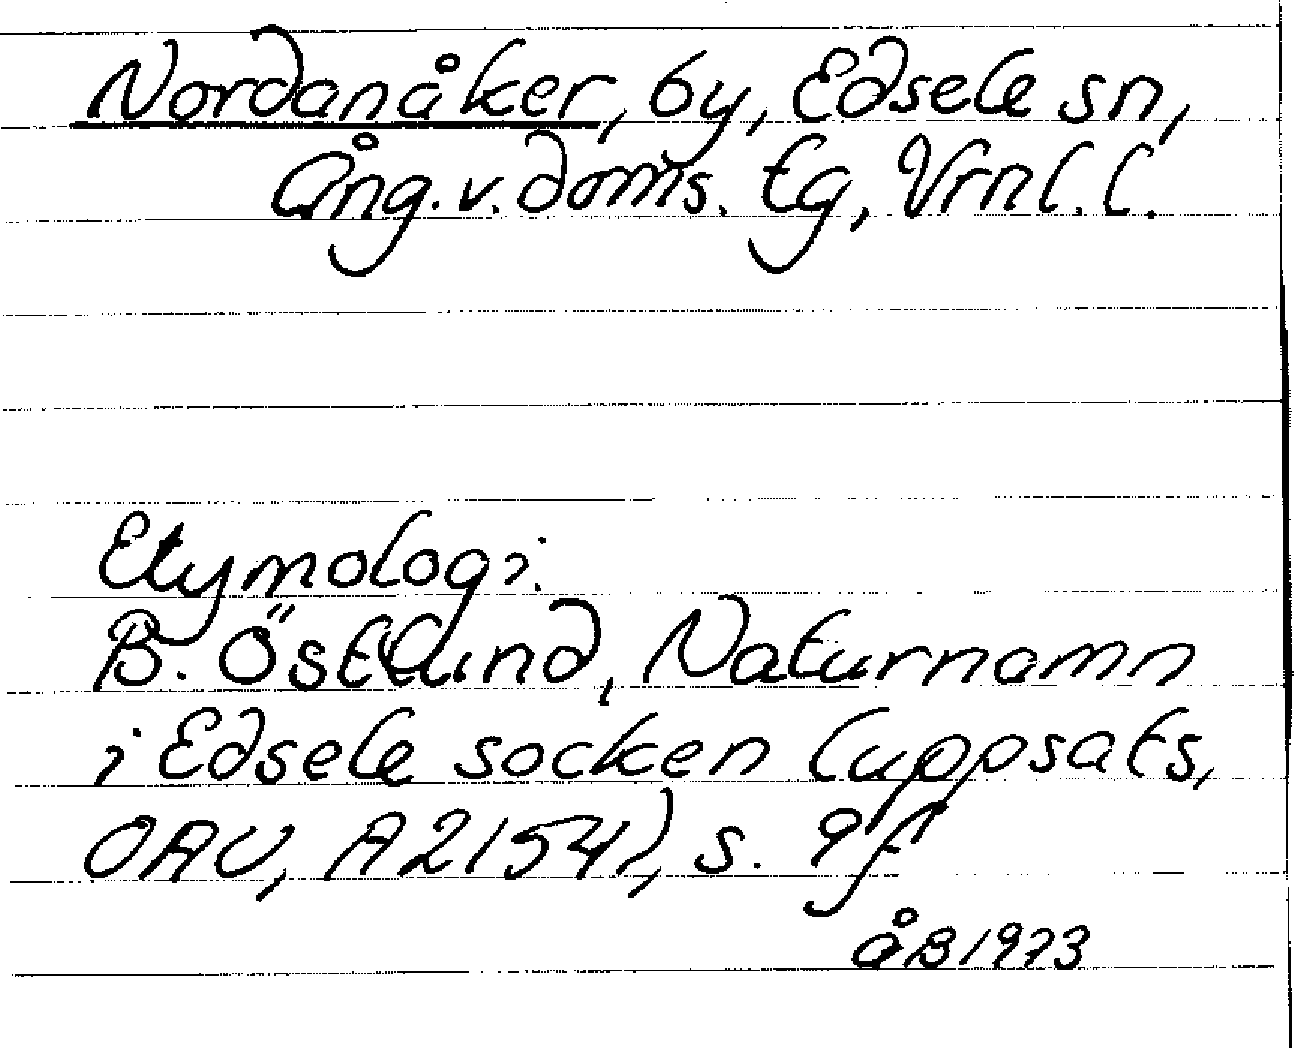 Nordanåker, by, Edsele sn,
Ång. v. doms. tg, Vrnl. l.
Etymologi:
B. Östlund, Naturnamn
i Edsele socken (uppsats,
OAU, A2154), s. 9f
åB1973